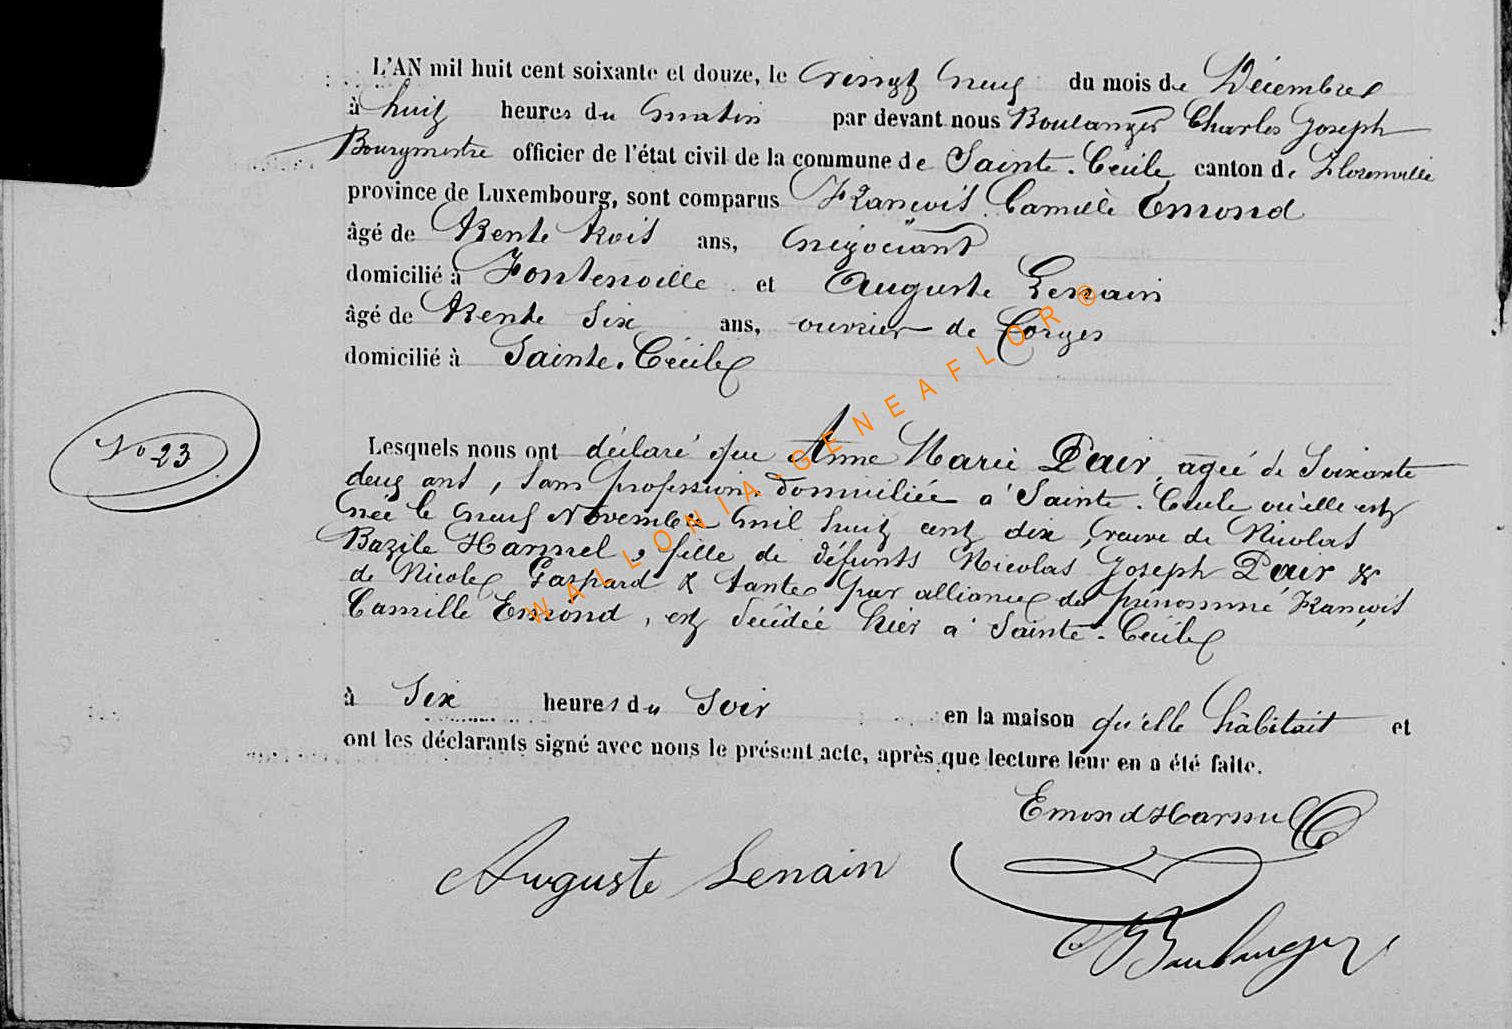 L'AN mil huit cent soixante et douze, le vingt neuf du mois de Décembre
à huit heures du matin par devant nous Boulanger Charles Joseph
Bourgmestre officier de l'état civil de la commune de Sainte-Cécile canton de Florenville
province de Luxembourg, sont comparus François Camille Emond
âgé de trente trois ans, négociant
domicilié à Fontenoille et Auguste Lenain
âgé de trente six ans, ouvrier de forges
domicilié à Sainte-Cécile
No 23
Lesquels nous ont déclaré que Anne Marie Pair, agée de soixante
deux ans, sans profession, domiciliée à Sainte-Cécile où elle est
née le neuf Novembre mil huit cent dix, veuve de Nicolas
Bazile Harmel, fille de défunts Nicolas Joseph Pair &
de Nicole Gaspard & tante par alliance du prénommé François
Camille Emond, est décédée hier à Sainte-Cécile
à six heures du soir en la maison qu'elle habitait et
ont les déclarants signé avec nous le présent acte, après que lecture leur en a été faite.
Emond Harmel
Auguste Lenain
Boulanger
WALLONIA-GENEAFLOR©